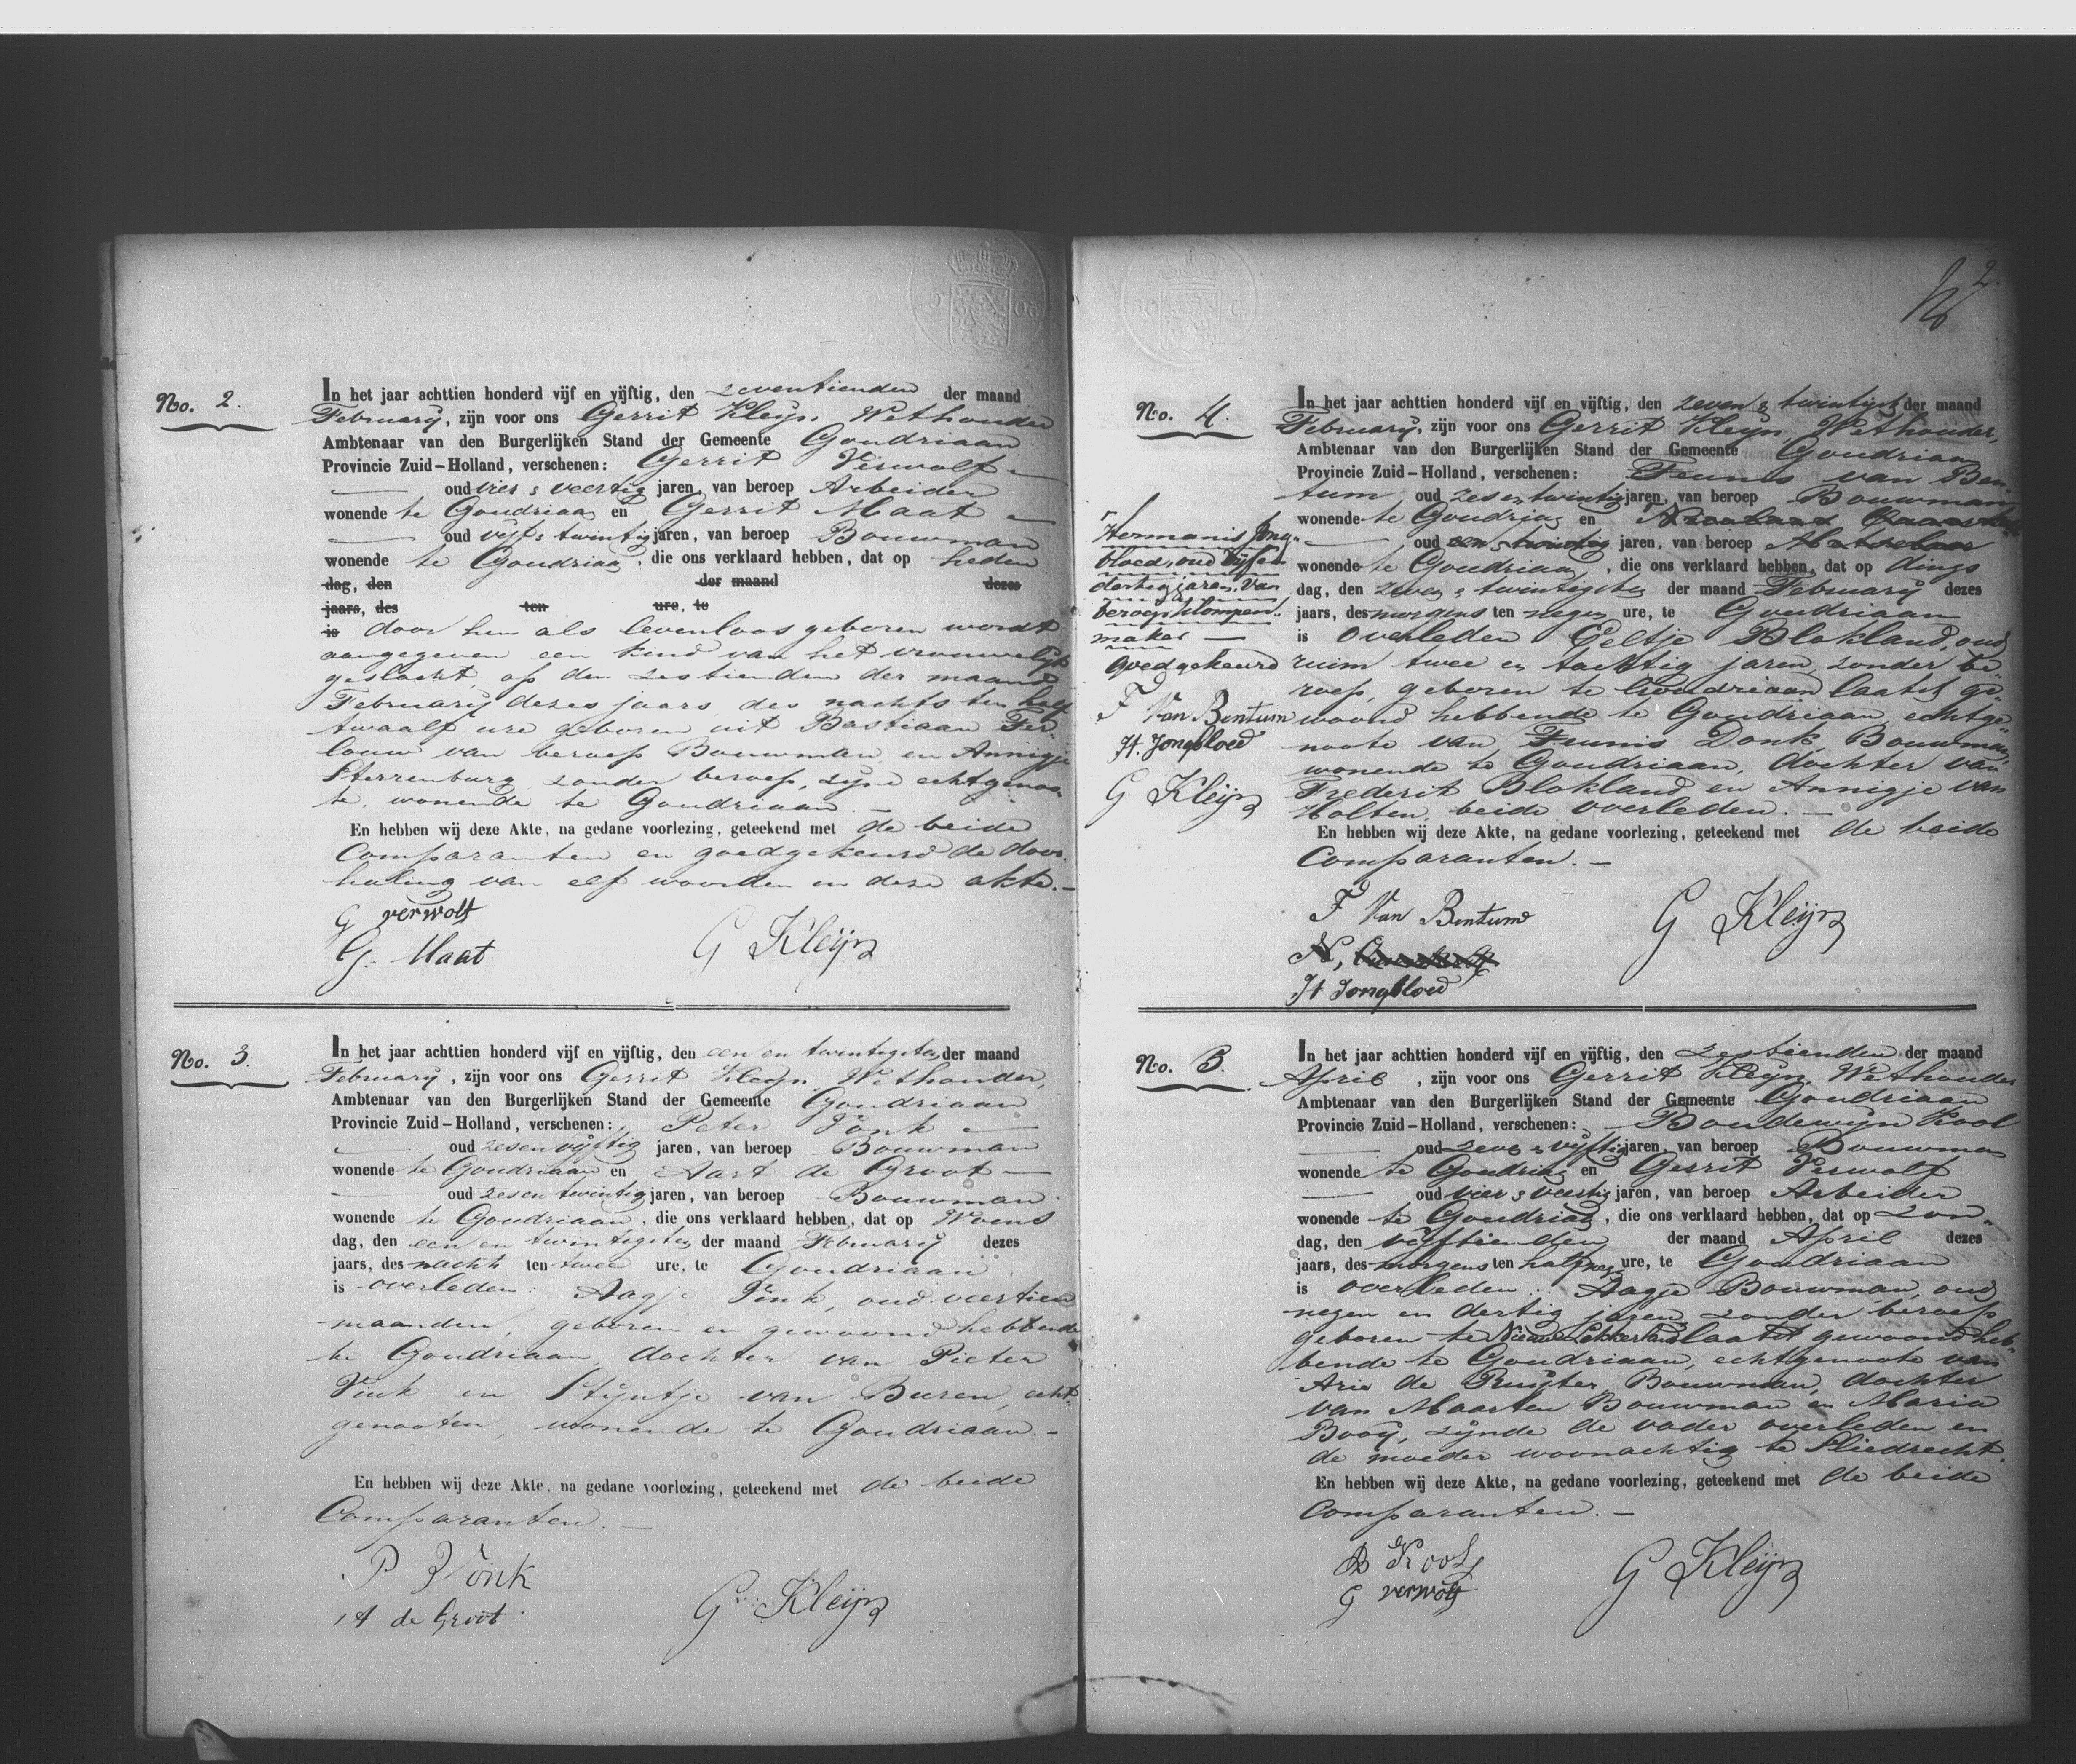 No. 2.
In het jaar achttien honderd vijf en vijftig, den zeventienden der maand
February, zijn voor ons Gerrit Kleijn, Wethouder
Ambtenaar van den Burgerlijken Stand der Gemeente Goudriaan
Provincie Zuid-Holland, verschenen: Gerrit Verwolf
oud vier & veertig jaren, van beroep Arbeider
wonende te Goudriaan en Gerrit Maat
oud vijf & twintig jaren, van beroep Bouwman
wonende te Goudriaan, die ons verklaard hebben, dat op heden
dag, den der maand dezes
jaars, des ten ure, te
is door hun als levenloos geboren wordt
aangegeven een kind van het vrouwelijk
geslacht, op den zestienden der maand
February dezes jaars des nachts ten half
twaalf ure geboren uit Bastiaan Ter-
louw van beroep Bouwman en Annigje
Sterrenburg, zonder beroep, zijne echtgenoo-
te, wonende te Goudriaan. —
En hebben wij deze Akte, na gedane voorlezing, geteekend met de beide
Comparanten en goedgekeurd de door-
haling van elf woorden in deze akte. —
G verwolf
G. Maat
G Kleijn
No. 3.
In het jaar achttien honderd vijf en vijftig, den een en twintigsten der maand
February, zijn voor ons Gerrit Kleijn, Wethouder,
Ambtenaar van den Burgerlijken Stand der Gemeente Goudriaan
Provincie Zuid-Holland, verschenen: Peter Vonk
oud zes en vijftig jaren, van beroep Bouwman
wonende te Goudriaan en Aart de Groot —
oud zes en twintig jaren, van beroep Bouwman
wonende te Goudriaan, die ons verklaard hebben, dat op Woens
dag, den een en twintigsten der maand February dezes
jaars, des nachts ten twee ure, te Goudriaan
is overleden: Aagje Vink, oud veertien
maanden, geboren en gewoond hebbende
te Goudriaan, dochter van Pieter
Vink en Stijntje van Buren, echt-
genooten, wonende te Goudriaan. —
En hebben wij deze Akte, na gedane voorlezing, geteekend met de beide
Comparanten. —
P Vonk
A de Groot
G Kleijn
2
No. 4.
In het jaar achttien honderd vijf en vijftig, den zeven & twintigsten der maand
February, zijn voor ons Gerrit Kleijn, Wethouder,
Ambtenaar van den Burgerlijken Stand der Gemeente Goudriaan
Provincie Zuid-Holland, verschenen: Teunis van Ben-
tum, oud zes en twintig jaren, van beroep Bouwman
wonende te Goudriaan en
oud een & twintig jaren, van beroep Metselaar
wonende te Goudriaan, die ons verklaard hebben, dat op dings
dag, den zeven & twintigsten der maand February dezes
jaars, des morgens ten negen ure, te Goudriaan
is overleden Geltje Blokland, oud
ruim twee en tachtig jaren, zonder be-
roep, geboren te Goudriaan laatst ge-
woond hebbende te Goudriaan, echtge-
noote van Teunis Donk, Bouwman,
wonende te Goudriaan, dochter van
Frederik Blokland en Annigje van
Holten, beide overleden. —
En hebben wij deze Akte, na gedane voorlezing, geteekend met de beide
Comparanten. —
Hermanis Jong-
bloed, oud vijf en
dertig jaren, van
beroep klompen-
maker —
goedgekeurd
T Van Bentum
H. Jongbloed
G Kleijn
T Van Bentum
N,
H Jongbloed
G Kleijn
No. 5.
In het jaar achttien honderd vijf en vijftig, den zestienden der maand
April, zijn voor ons Gerrit Kleijn, Wethouder
Ambtenaar van den Burgerlijken Stand der Gemeente Goudriaan
Provincie Zuid-Holland, verschenen: Boudewijn Kool
oud zeven & vijftig jaren, van beroep Bouwman
wonende te Goudriaan en Gerrit Verwolf
oud vier & veertig jaren, van beroep Arbeider
wonende te Goudriaan, die ons verklaard hebben, dat op Zon-
dag, den vijftienden der maand April dezes
jaars, des morgens ten half negen ure, te Goudriaan
is overleden: Aagje Bouwman, oud
negen en dertig jaren, zonder beroep
geboren te Nieuw Lekkerland laatst gewoond heb-
bende te Goudriaan, echtgenoote van
Arie de Ruijter, Bouwman, dochter
van Maarten Bouwman en Maria
Booy, zijnde de vader overleden en
de moeder woonachtig te Sliedrecht.
En hebben wij deze Akte, na gedane voorlezing, geteekend met de beide
Comparanten. —
B Kool
G verwolf
G Kleijn